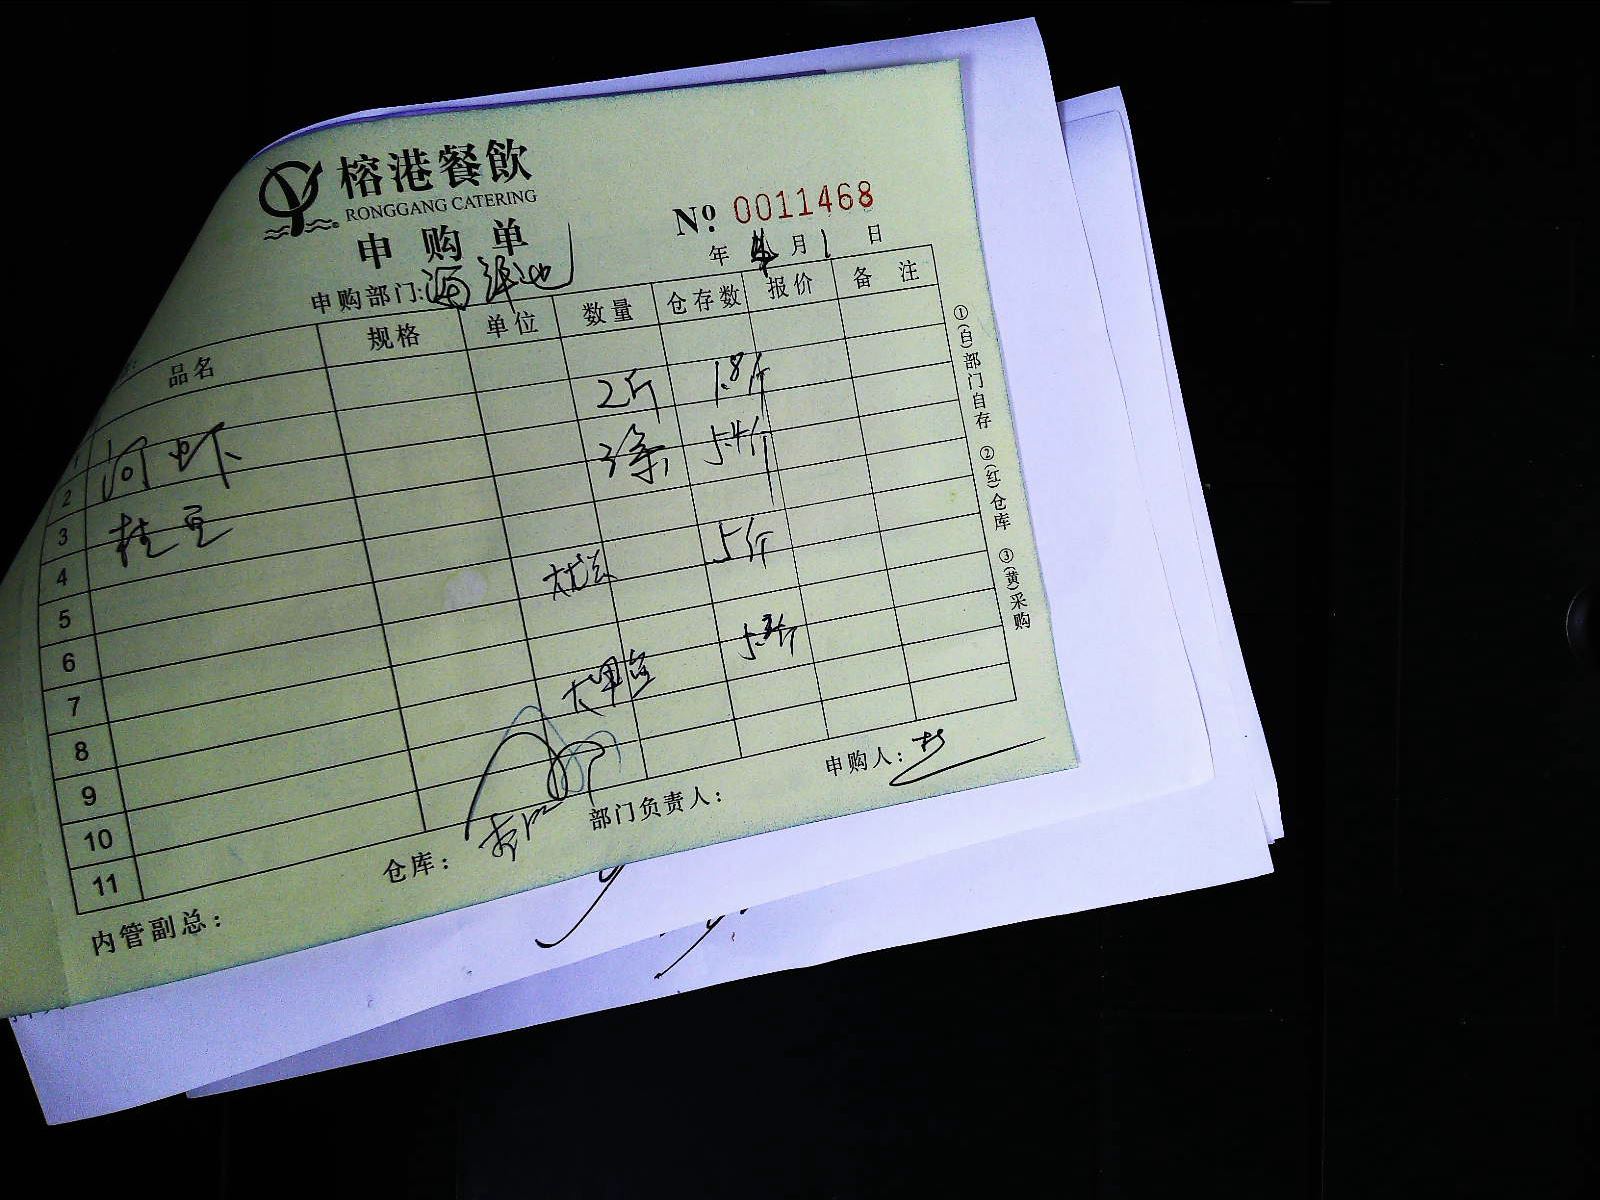 榕港餐飲
RONGGANG CATERING
申购单
№ 0011468
年 月 1 日
申购部门:海鲜池
品名 规格 单位 数量 仓存数 报价 备注
1
2 河虾 2斤 1.8斤
3 桂豆 3条 5.4斤
4
5 5斤
6
7 5.3斤
8
9
10
11
①(白)部门自存 ②(红)仓库 ③(黄)采购
内管副总: 仓库: 部门负责人: 申购人: